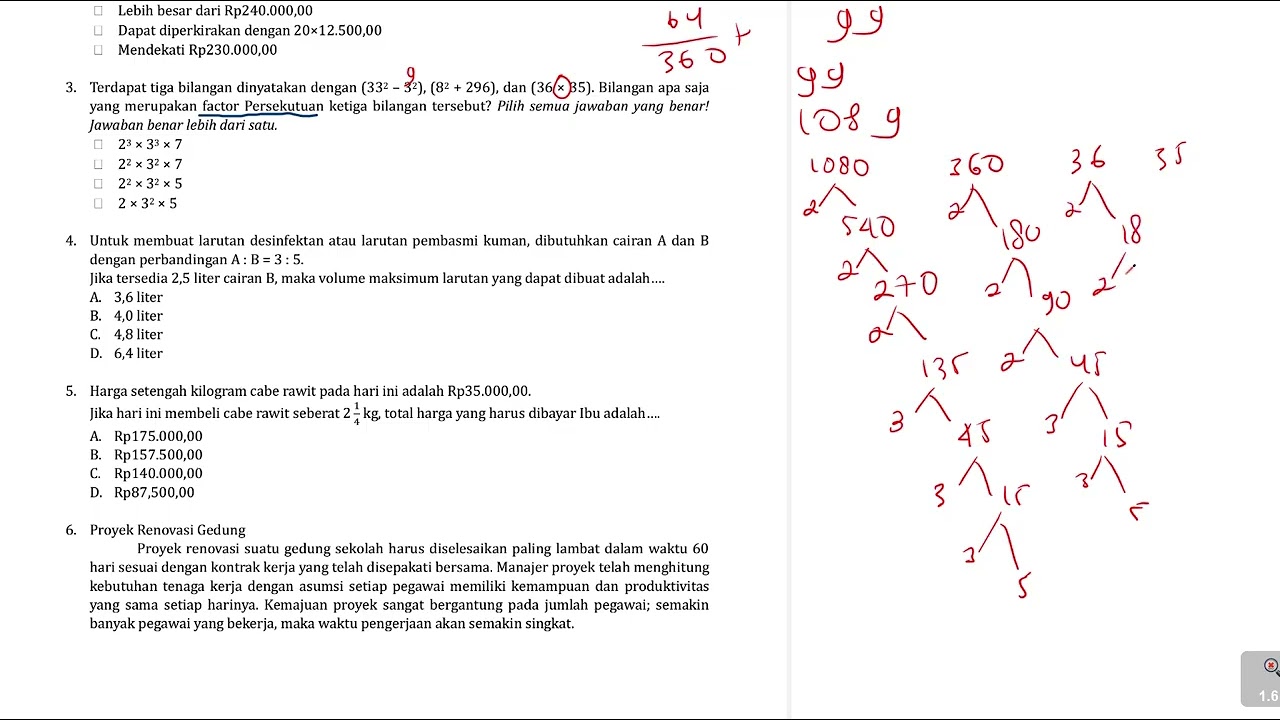 ☐ Lebih besar dari Rp240.000,00
☐ Dapat diperkirakan dengan 20×12.500,00
☐ Mendekati Rp230.000,00
3. Terdapat tiga bilangan dinyatakan dengan (33² – 3²), (8² + 296), dan (36 × 35). Bilangan apa saja
yang merupakan factor Persekutuan ketiga bilangan tersebut? Pilih semua jawaban yang benar!
Jawaban benar lebih dari satu.
☐ 2³ × 3³ × 7
☐ 2² × 3² × 7
☐ 2² × 3² × 5
☐ 2 × 3² × 5
4. Untuk membuat larutan desinfektan atau larutan pembasmi kuman, dibutuhkan cairan A dan B
dengan perbandingan A : B = 3 : 5.
Jika tersedia 2,5 liter cairan B, maka volume maksimum larutan yang dapat dibuat adalah....
A. 3,6 liter
B. 4,0 liter
C. 4,8 liter
D. 6,4 liter
5. Harga setengah kilogram cabe rawit pada hari ini adalah Rp35.000,00.
Jika hari ini membeli cabe rawit seberat 2 1/4 kg, total harga yang harus dibayar Ibu adalah....
A. Rp175.000,00
B. Rp157.500,00
C. Rp140.000,00
D. Rp87,500,00
6. Proyek Renovasi Gedung
Proyek renovasi suatu gedung sekolah harus diselesaikan paling lambat dalam waktu 60
hari sesuai dengan kontrak kerja yang telah disepakati bersama. Manajer proyek telah menghitung
kebutuhan tenaga kerja dengan asumsi setiap pegawai memiliki kemampuan dan produktivitas
yang sama setiap harinya. Kemajuan proyek sangat bergantung pada jumlah pegawai; semakin
banyak pegawai yang bekerja, maka waktu pengerjaan akan semakin singkat.
9
64
360 +
99
99
108 9
1080 360 36 35
2 540 2 180 2 18
2 270 2 90 2
2 135 2 45
3 45 3 15
3 15 3 5
3 5
1.6